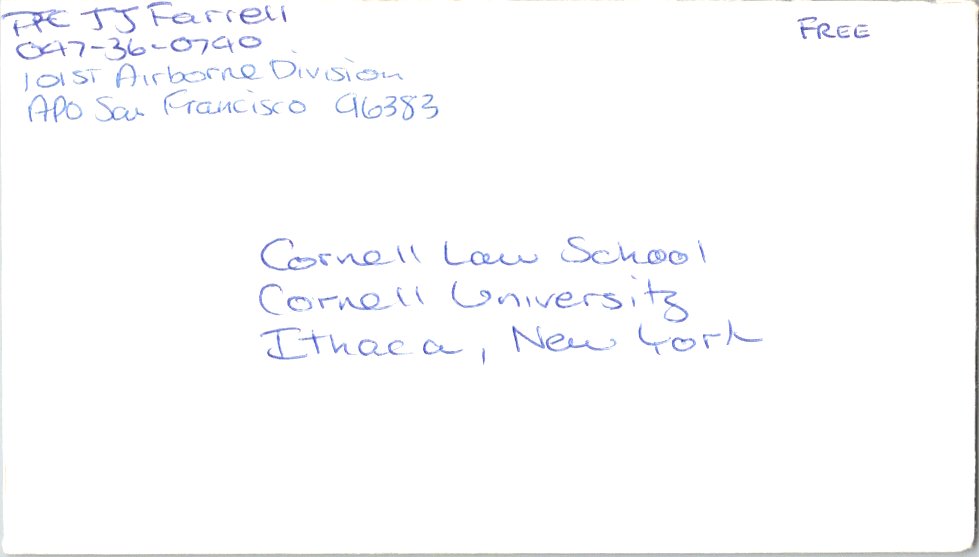 PFC JJ Farrell
101ST Airborne Division
APO San Francisco 96383
FREE
Cornell Law School
Cornell University
Ithaca, New York